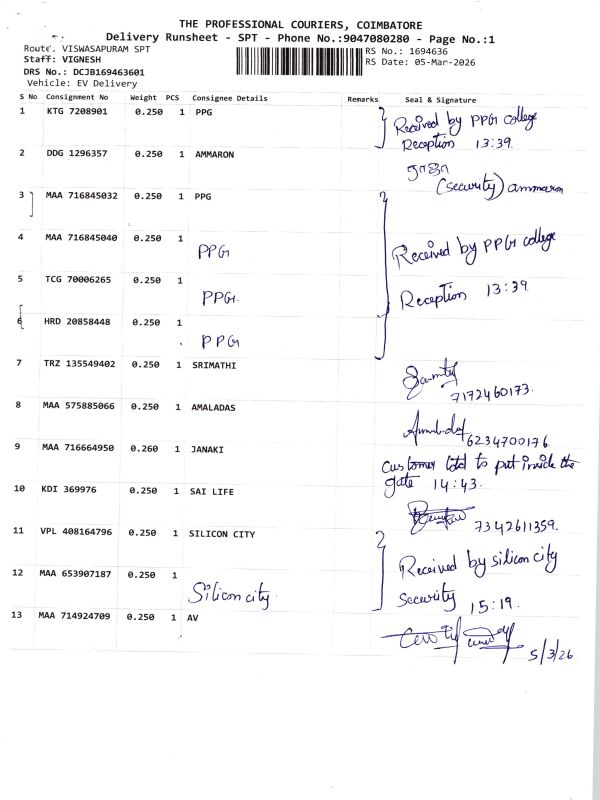 THE PROFESSIONAL COURIERS, COIMBATORE
Delivery Runsheet - SPT - Phone No.:9047080280 - Page No.:1
Route: VISWASAPURAM SPT
RS No.: 1694636
Staff: VIGNESH
RS Date: 05-Mar-2026
DRS No.: DCJB169463601
Vehicle: EV Delivery
S No Consignment No Weight PCS Consignee Details Remarks Seal & Signature
1 KTG 7208901 0.250 1 PPG
Received by PPG college
Reception 13:39.
2 DDG 1296357 0.250 1 AMMARON
(security) ammaron
3 MAA 716845032 0.250 1 PPG
4 MAA 716845040 0.250 1 PPG
Received by PPG college
5 TCG 70006265 0.250 1 PPG.
Reception 13:39.
6 HRD 20858448 0.250 1 PPG
7 TRZ 135549402 0.250 1 SRIMATHI
7172460173.
8 MAA 575885066 0.250 1 AMALADAS
6234700176
9 MAA 716664950 0.260 1 JANAKI
customer told to put inside the
gate 14:43.
10 KDI 369976 0.250 1 SAI LIFE
7342611359.
11 VPL 408164796 0.250 1 SILICON CITY
Received by silicon city
12 MAA 653907187 0.250 1 Silicon city.
security 15:19.
13 MAA 714924709 0.250 1 AV
5/3/26